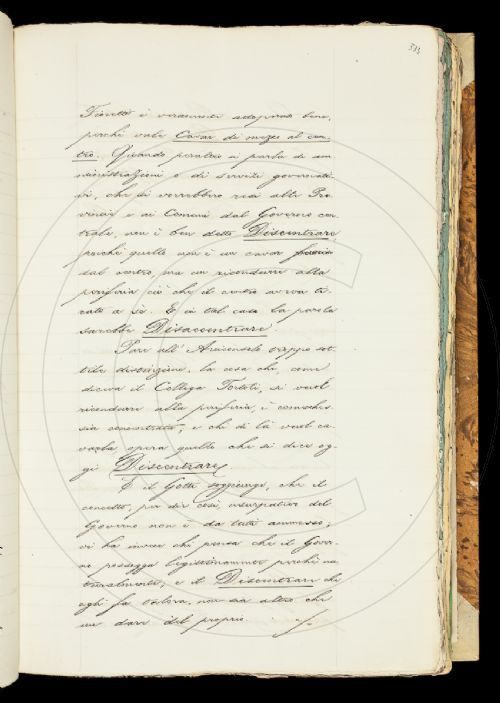 Fioretto è veramente adoprato bene,
perchè vale Cavar di mezzo al cen-
tro. Quando peraltro si parla di am-
ministrazioni e di servizi governati-
vi, che si vorrebbero resi alle Pro-
vincie e ai Comuni dal Governo cen-
trale, non è ben detto Discentrare,
perchè quello non è un cavar fuori
dal centro, ma un ricondurre alla
periferia ciò che il centro aveva ti-
rato a sè. E in tal caso la parola
sarebbe Disaccentrare.
Pare all' Arciconsolo troppo sot-
tile distinzione. La cosa che, come
diceva il Collega Tortoli, si vuol
ricondurre alla periferia, è
sia concentrata; e chi di là vuol ca-
varla opera quello che si dice og-
gi Discentrare.
E il Gotti soggiunge, che il
concetto, per dir così, usurpativo del
Governo non è da tutti ammesso;
vi ha invece chi pensa che il Gover-
no possegga legittimamente perchè na-
turalmente, e il Discentrare che
egli fa talora, non sia altro che
un dare del proprio.